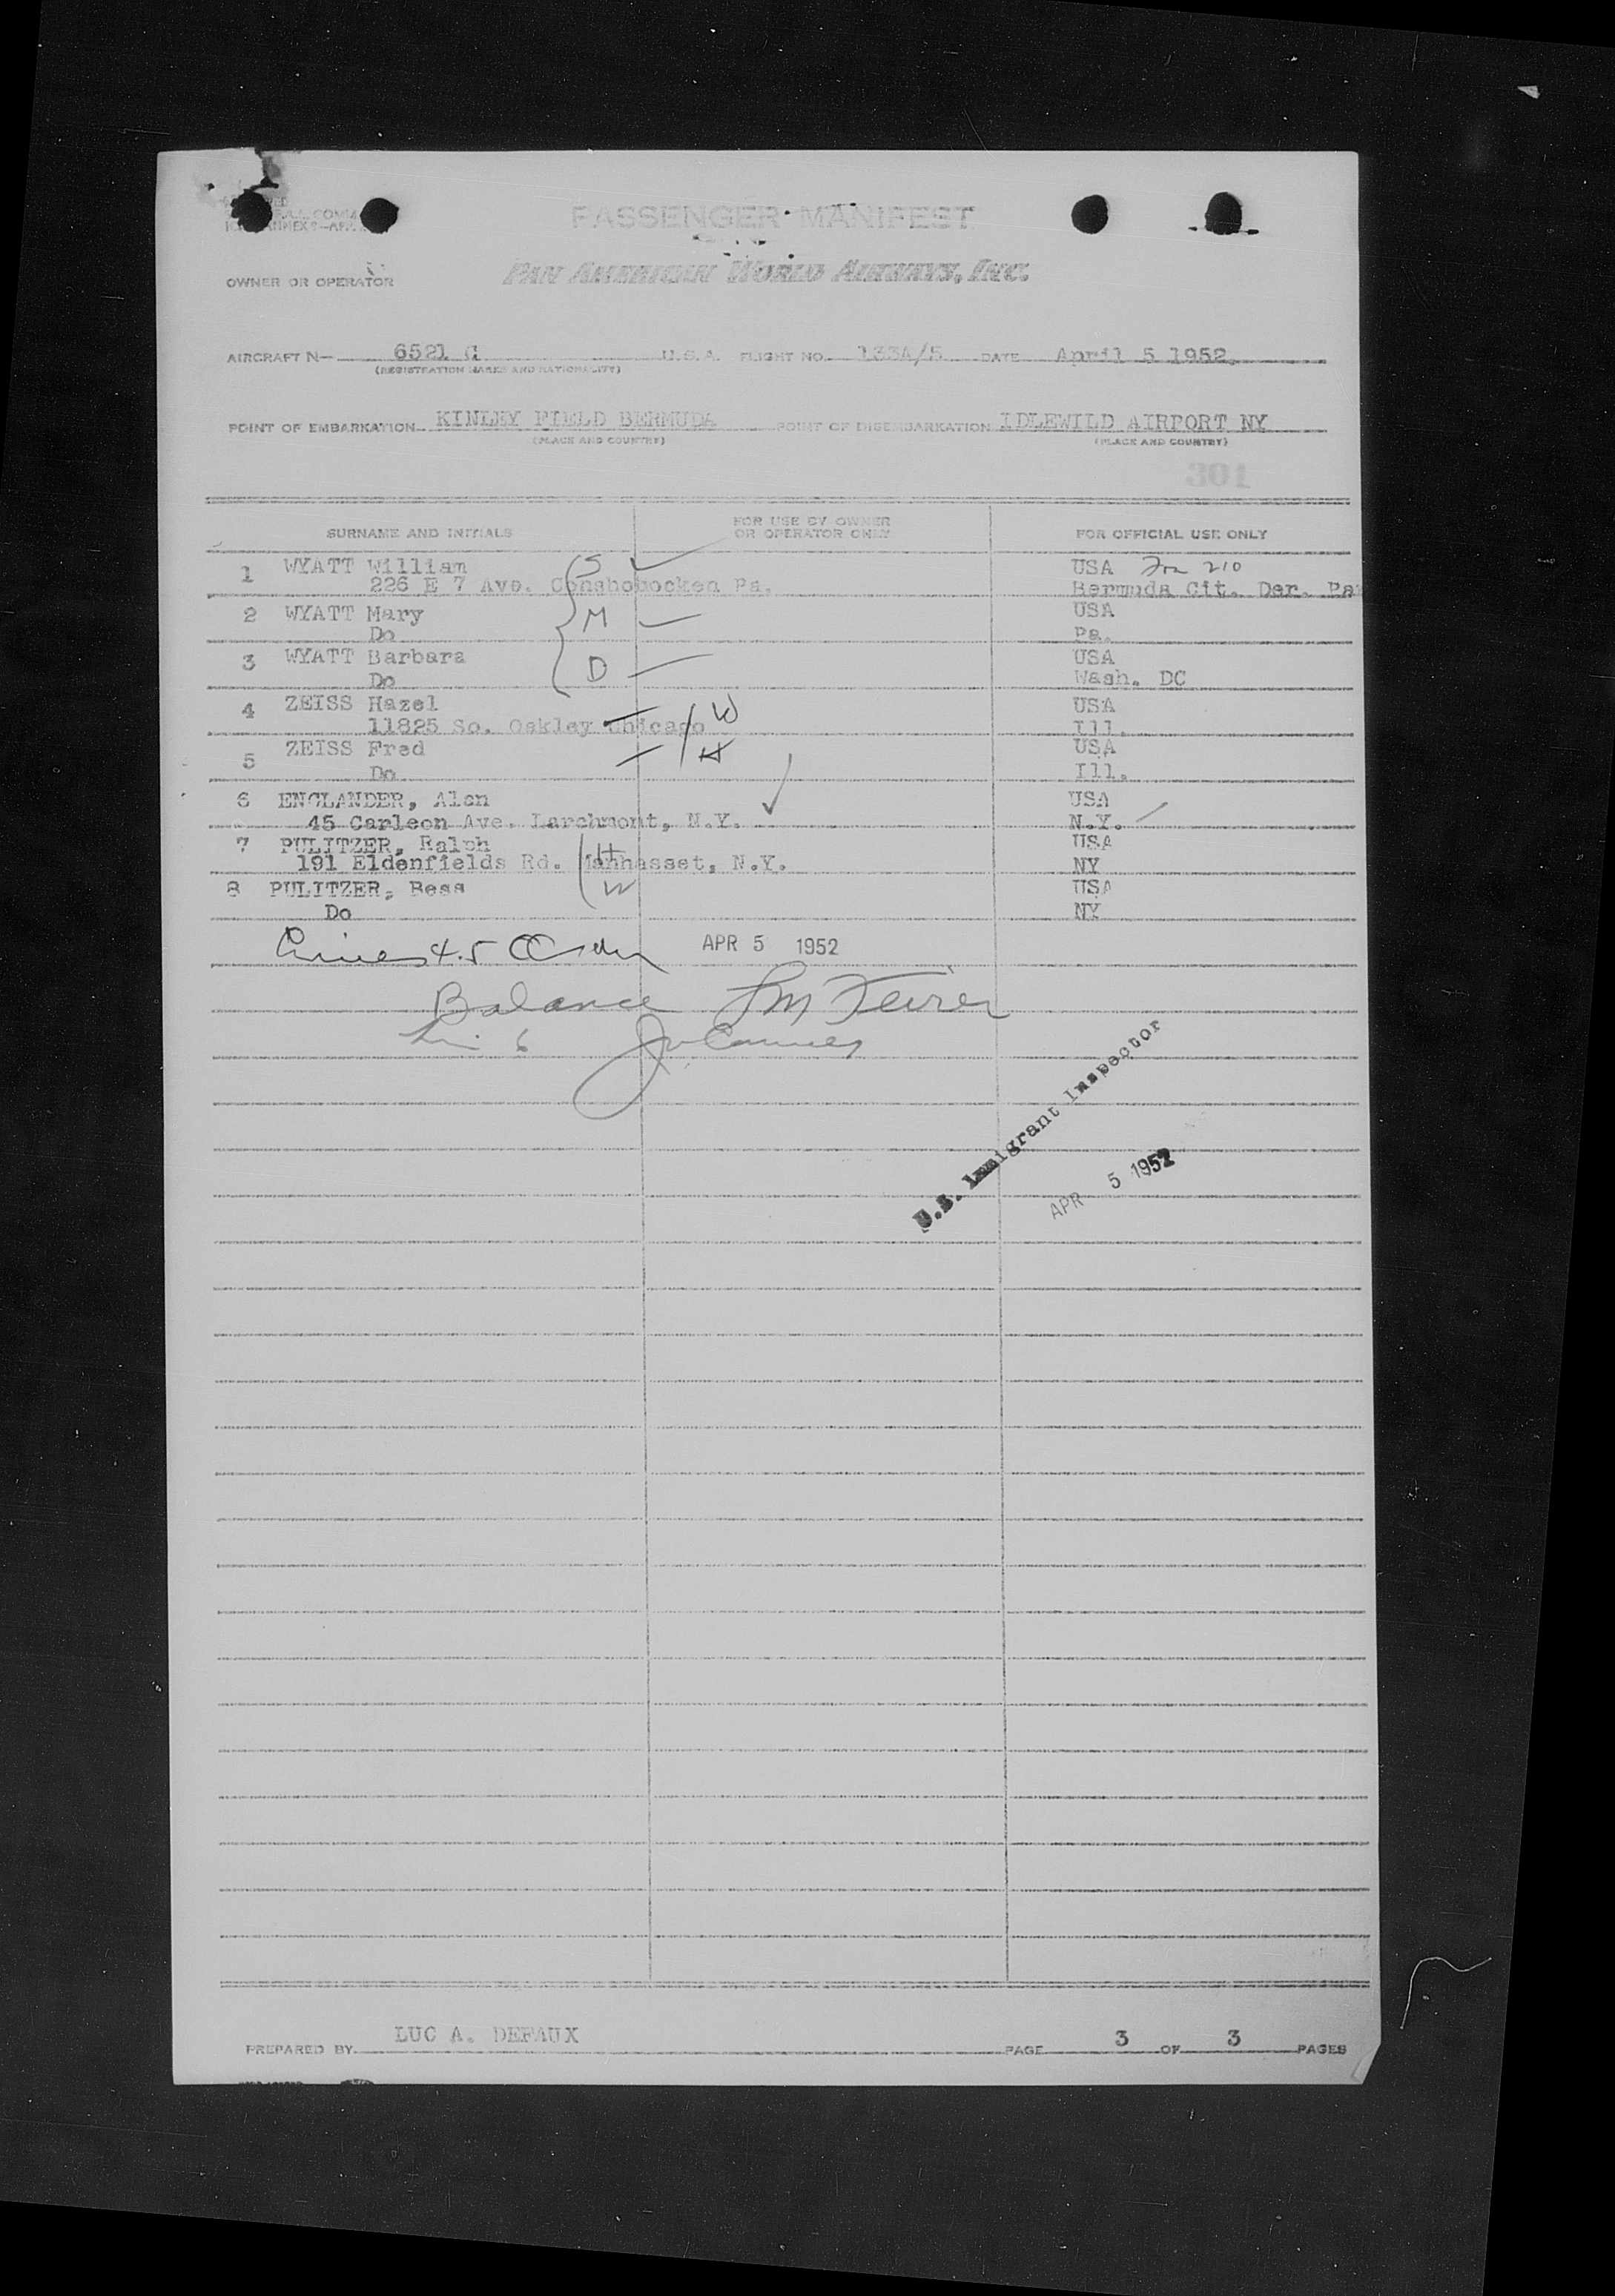 PASSENGER MANIFEST
OWNER OR OPERATOR PAN AMERICAN WORLD AIRWAYS, INC.
AIRCRAFT N— 6521 C U.S.A. FLIGHT NO. 133A/5 DATE April 5 1952
(REGISTRATION MARKS AND NATIONALITY)
POINT OF EMBARKATION KINLEY FIELD BERMUDA POINT OF DISEMBARKATION IDLEWILD AIRPORT NY
(PLACE AND COUNTRY) (PLACE AND COUNTRY)
301
SURNAME AND INITIALS FOR USE BY OWNER OR OPERATOR ONLY FOR OFFICIAL USE ONLY
1 WYATT William S USA 210
226 E 7 Ave. Conshohocken Pa. Bermuda Cit. Der. Pa
2 WYATT Mary M USA
Do Pa.
3 WYATT Barbara D USA
Do Wash. DC
4 ZEISS Hazel W USA
11825 So. Oakley Chicago Ill.
5 ZEISS Fred H USA
Do Ill.
6 ENGLANDER, Alan USA
45 Carleon Ave. Larchmont, N.Y. N.Y.
7 PULITZER, Ralph H USA
191 Eldenfields Rd. Manhasset, N.Y. NY
8 PULITZER, Bess W USA
Do NY
Lines 4.5 APR 5 1952
Balance
6
U.S. Immigrant Inspector
APR 5 1952
PREPARED BY LUC A. DEFAUX PAGE 3 OF 3 PAGES